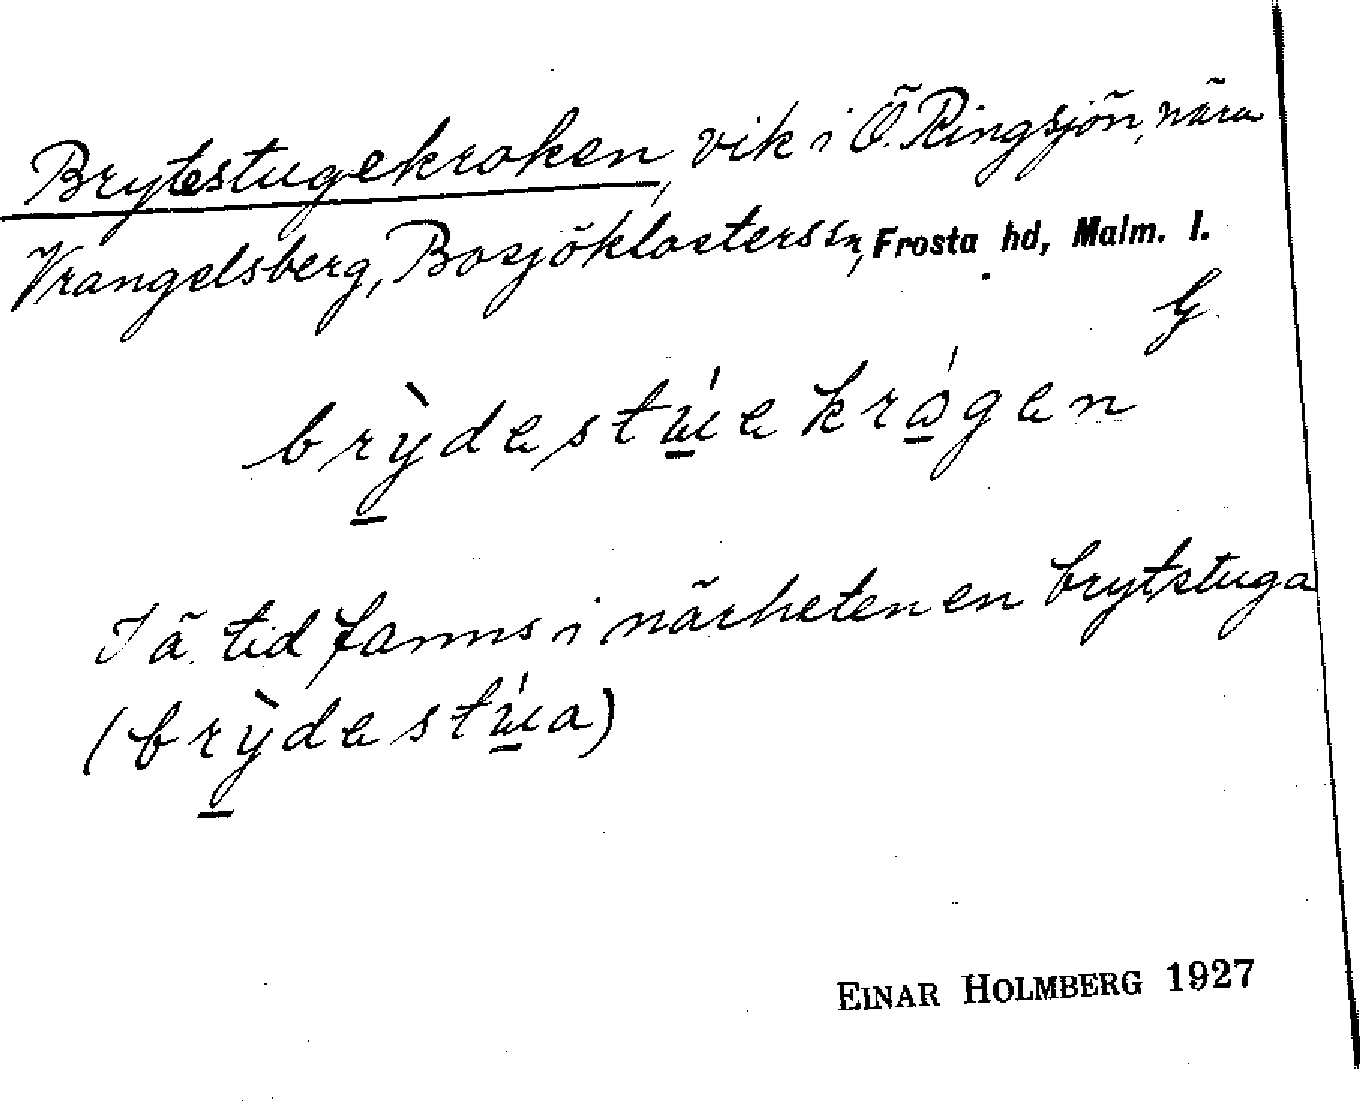 Brytestugekroken, vik i Ö. Ringsjön, nära
Vrangelsberg, Bosjöklosters sn, Frosta hd, Malm. l.
G.
brỳdestúekrógen
I ä. tid fanns i närheten en brytstuga
(brỳdestúa)
EINAR HOLMBERG 1927